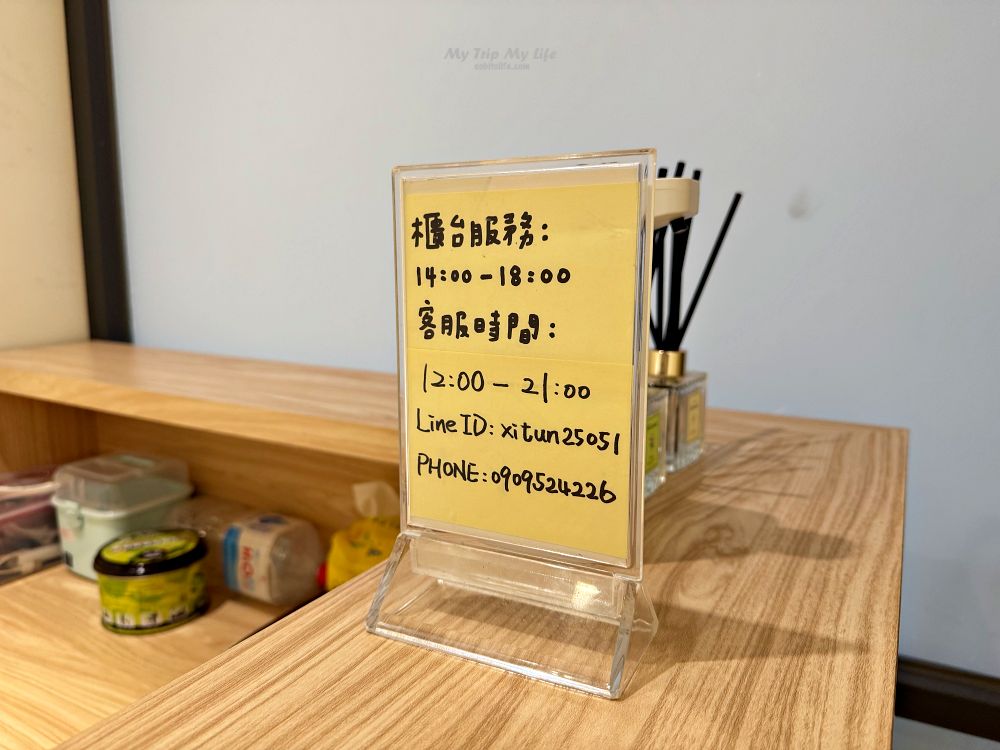 My Trip My Life
櫃台服務:
14:00-18:00
客服時間:
12:00-21:00
Line ID: xitun25051
PHONE:0909524226